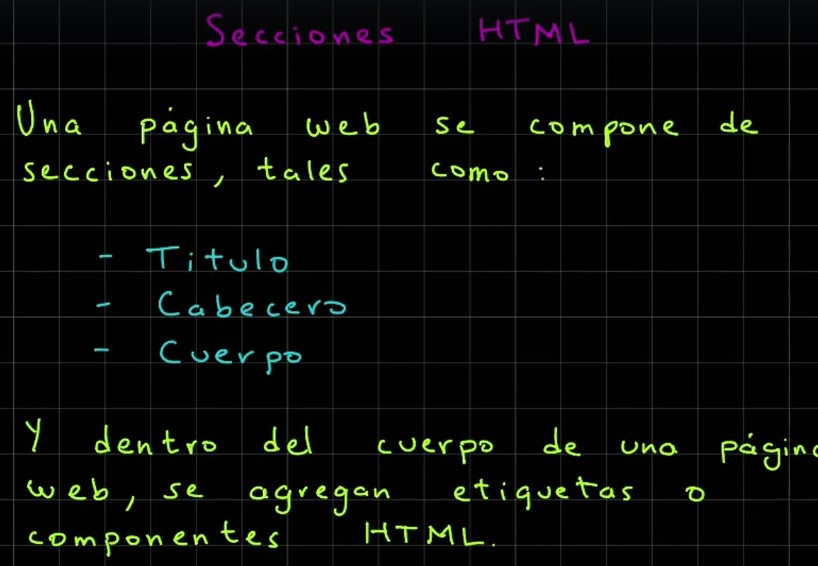 Secciones HTML
Una página web se compone de
secciones, tales como:
- Titulo
- Cabecero
- Cuerpo
Y dentro del cuerpo de una página
web, se agregan etiquetas o
componentes HTML.